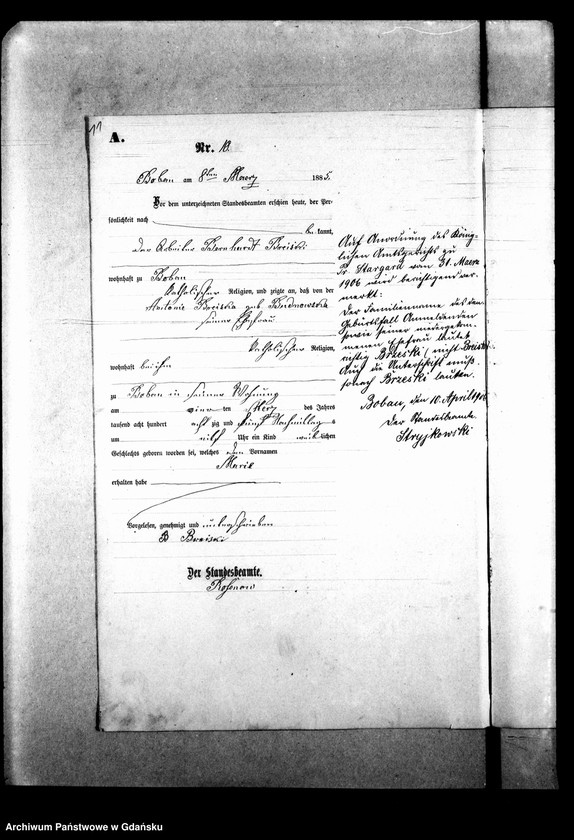 11
A.
Nr. 12.
Boban am 8ten Maerz 1885.
Vor dem unterzeichneten Standesbeamten erschien heute, der Per-
sönlichkeit nach
be kannt,
der Arbeiter Bernhardt Breiski
wohnhaft zu Boban
katholischer Religion, und zeigte an, daß von der
Antonie Breiska geb Budnowska
seiner Ehefrau
katholischer Religion,
wohnhaft bei ihm
zu Boban in seiner Wohnung
am vier ten Merz des Jahres
tausend acht hundert acht zig und fünf Nachmittag s
um Uhr ein Kind weib lichen
Geschlechts geboren worden sei, welches den Vornamen
Marie
erhalten habe
Vorgelesen, genehmigt und unterschrieben
B Breiski
Der Standesbeamte.
Rohmann
Auf Anordnung des König-
lichen Amtsgerichts zu
Pr. Stargard vom 31. Maerz
1906 wird berichtigend ver-
merkt:
Der Familienname des den
Geburtsfall Anmeldenden
sowie seiner
Ehefrau lautet
richtig Brzeski (nicht Breiski).
Auch die Unterschrift muß
sonach Brzeski lauten.
Bobau, den 10. April 1906
Der Standesbeamte
Stryjkowski
Archiwum Państwowe w Gdańsku